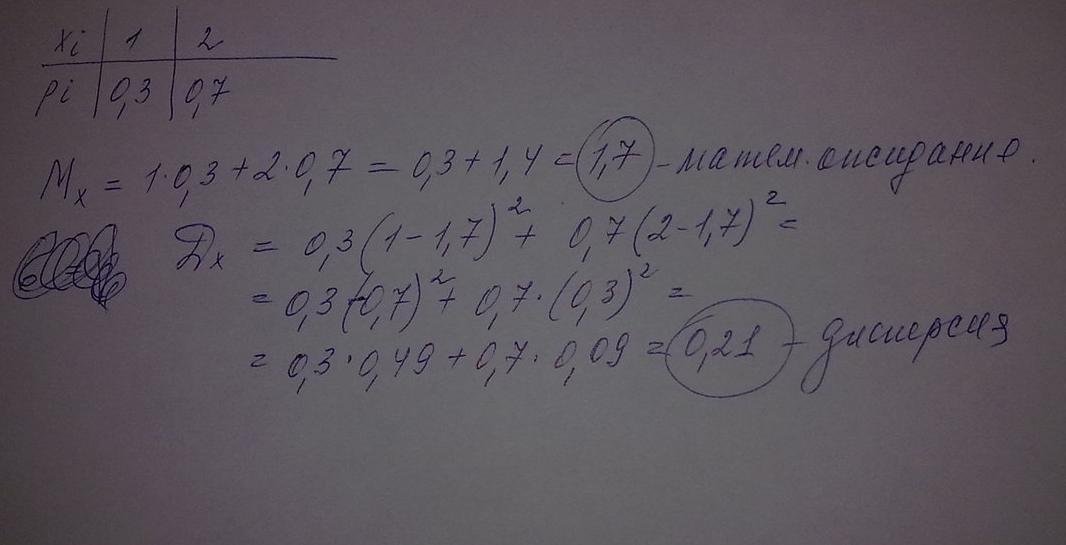 xi | 1 | 2
pi | 0,3 | 0,7
Mx = 1·0,3 + 2·0,7 = 0,3 + 1,4 = 1,7 - матем. ожидание.
Dx = 0,3(1-1,7)² + 0,7(2-1,7)² =
= 0,3(-0,7)² + 0,7·(0,3)² =
= 0,3·0,49 + 0,7·0,09 = 0,21 - дисперсия